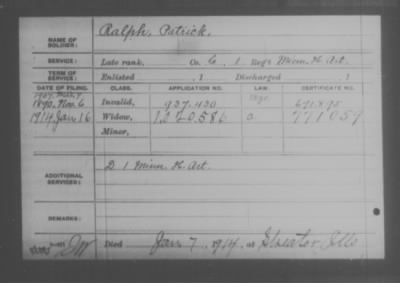 NAME OF SOLDIER: Ralph, Patrick.
SERVICE: Late rank, Co. C, 1 Reg't Minn. H. Art.
TERM OF SERVICE: Enlisted , 1 Discharged , 1
DATE OF FILING. CLASS. APPLICATION NO. LAW. CERTIFICATE NO.
1890, Nov. 6 Invalid, 937.430 671.895
1914, Jan 16 Widow, 1.020.586 771059
Minor,
ADDITIONAL SERVICES: D 1 Minn. H. Art.
REMARKS:
Died Jan 7, 1914, at Streator, Ills